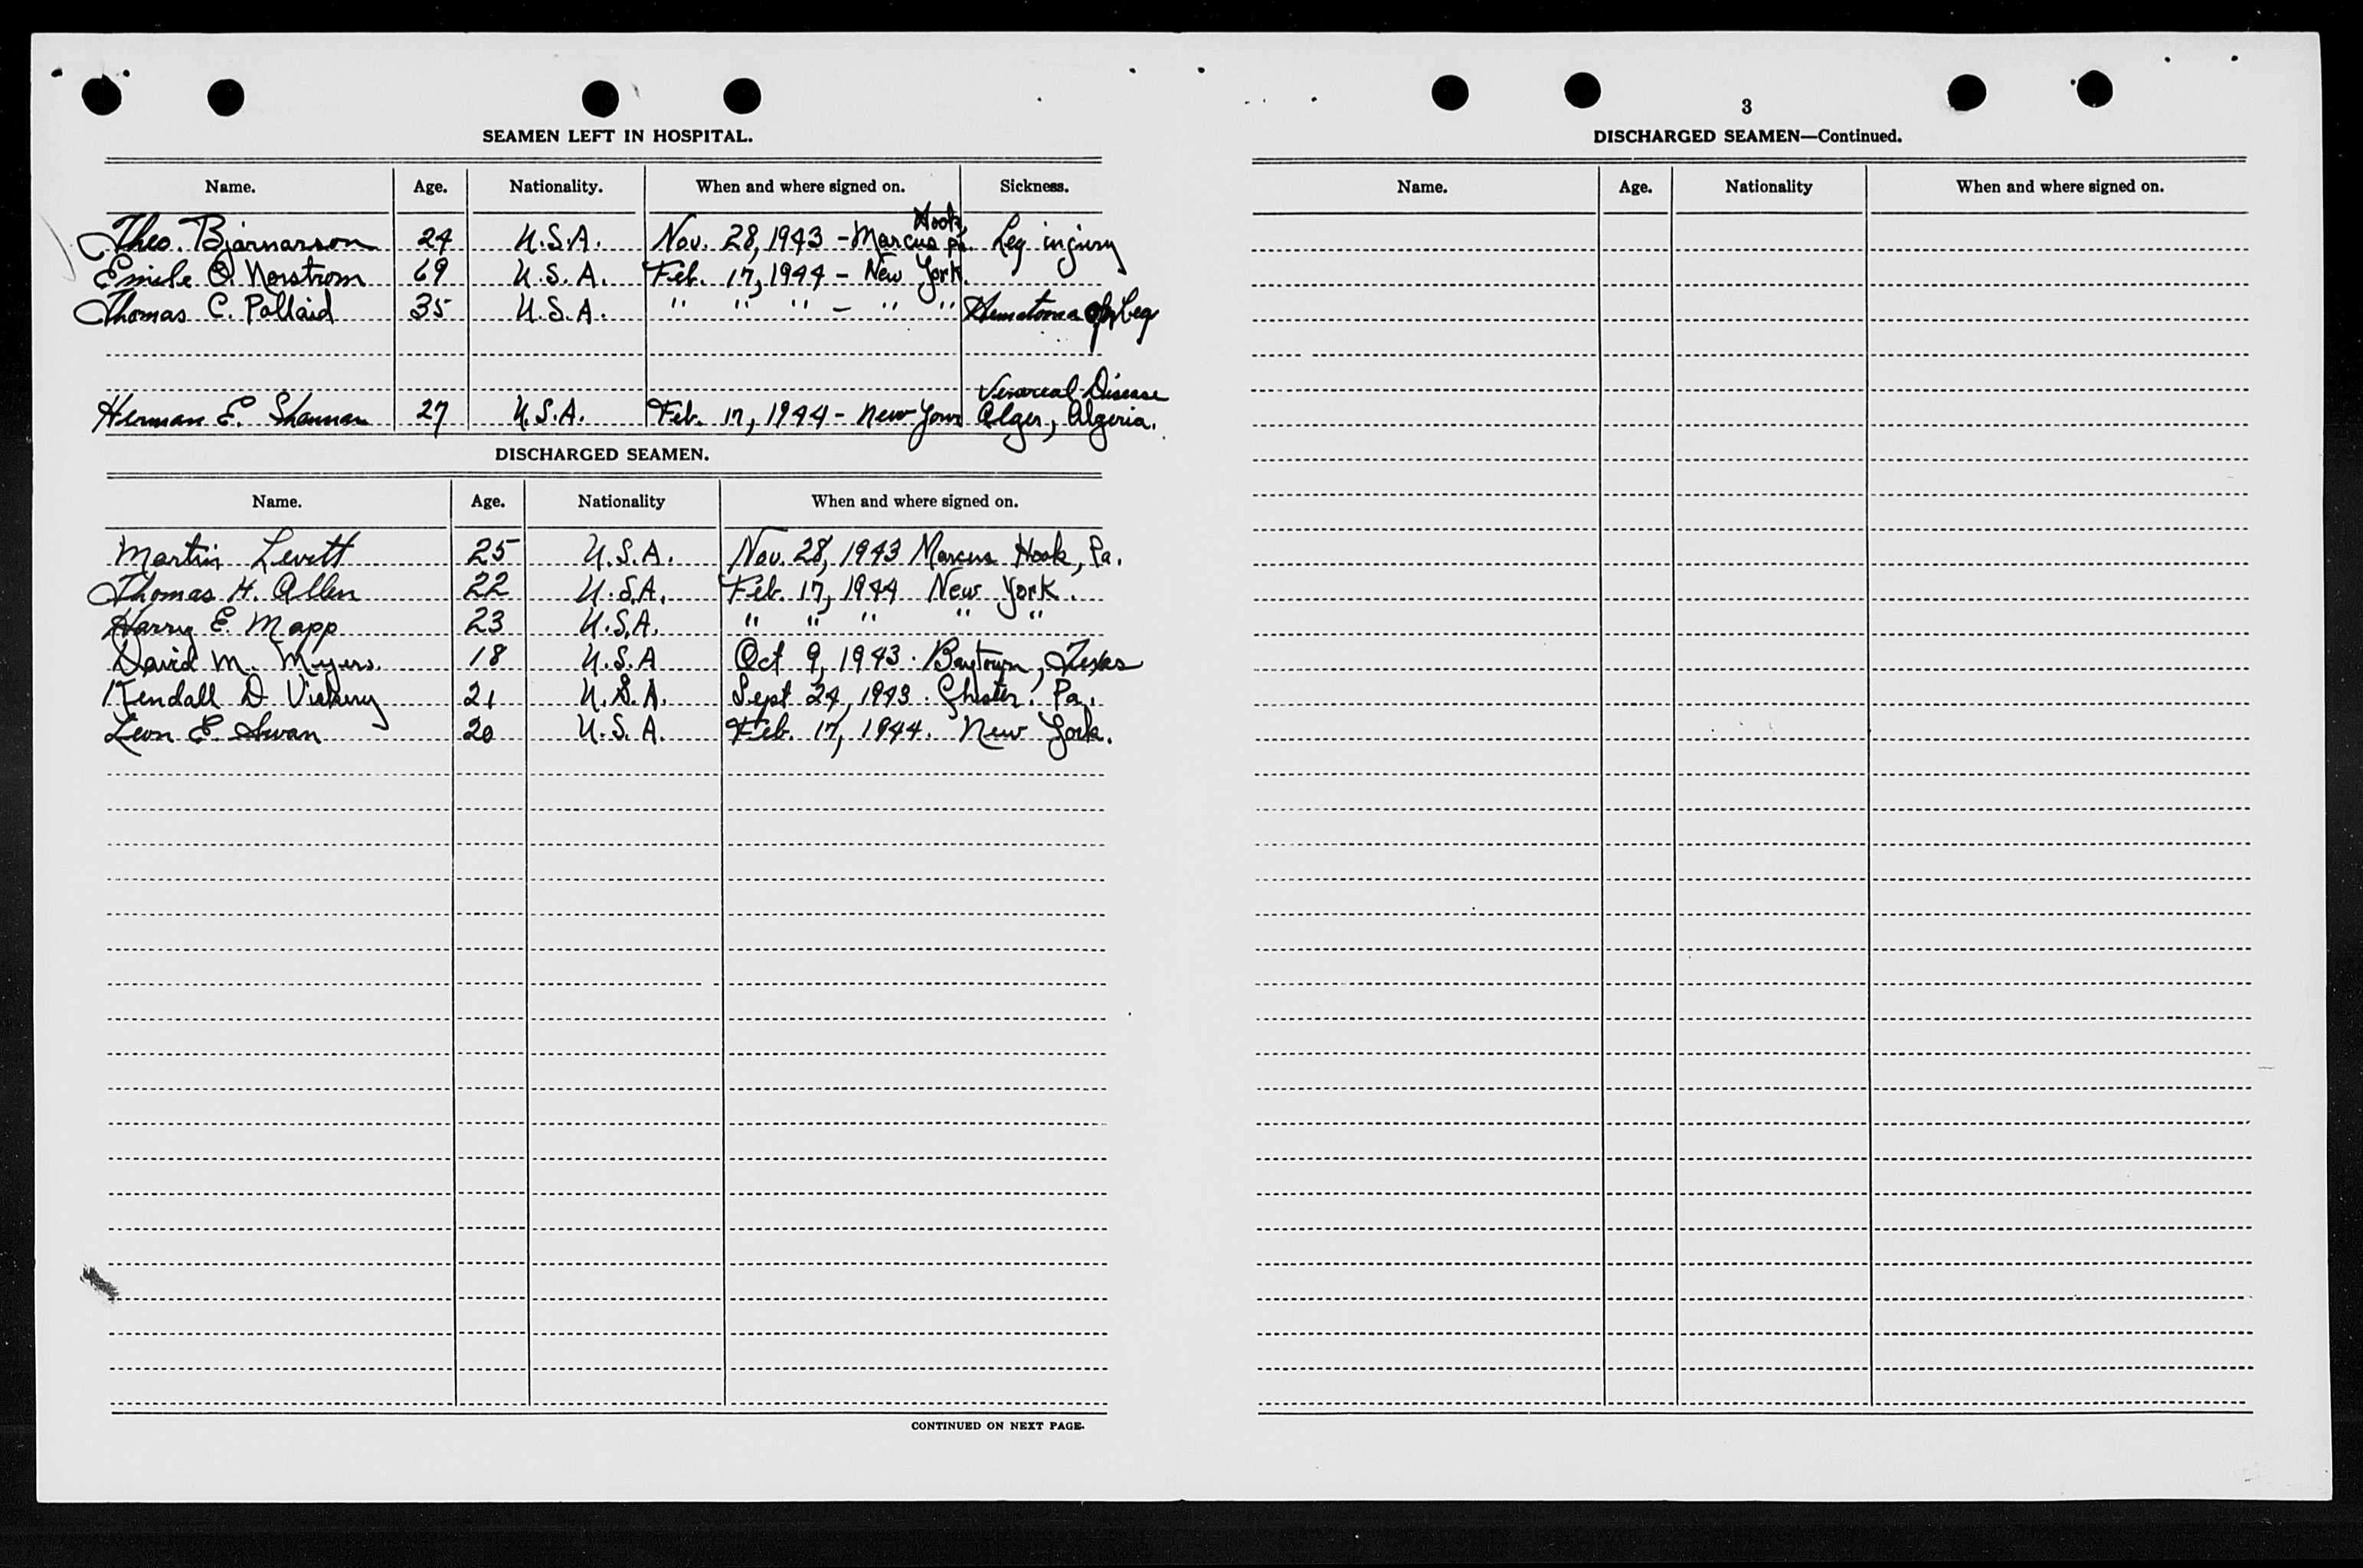 SEAMEN LEFT IN HOSPITAL.
Name. Age. Nationality. When and where signed on. Sickness.
Theo. Bjarnarson 24 U.S.A. Nov. 28, 1943 - Marcus Hook, Pa. Leg injury
Emile O. Norstrom 69 U.S.A. Feb. 17, 1944 - New York.
Thomas C. Pollaid 35 U.S.A. " " " - " " Hematoma of Leg
Venereal Disease
Herman E. Shannan 27 U.S.A. Feb. 17, 1944 - New York Alger, Algeria.
DISCHARGED SEAMEN.
Name. Age. Nationality When and where signed on.
Martin Levitt 25 U.S.A. Nov. 28, 1943 Marcus Hook, Pa.
Thomas H. Allen 22 U.S.A. Feb. 17, 1944 New York.
Harry E. Mapp 23 U.S.A. " " " " "
David M. Myers. 18 U.S.A Oct 9, 1943. Baytown, Texas
Kendall D Vickery 21 U.S.A. Sept 24, 1943. Chester. Pa.
Leon E. Swan 20 U.S.A. Feb. 17, 1944. New York.
CONTINUED ON NEXT PAGE.
3
DISCHARGED SEAMEN—Continued.
Name. Age. Nationality When and where signed on.